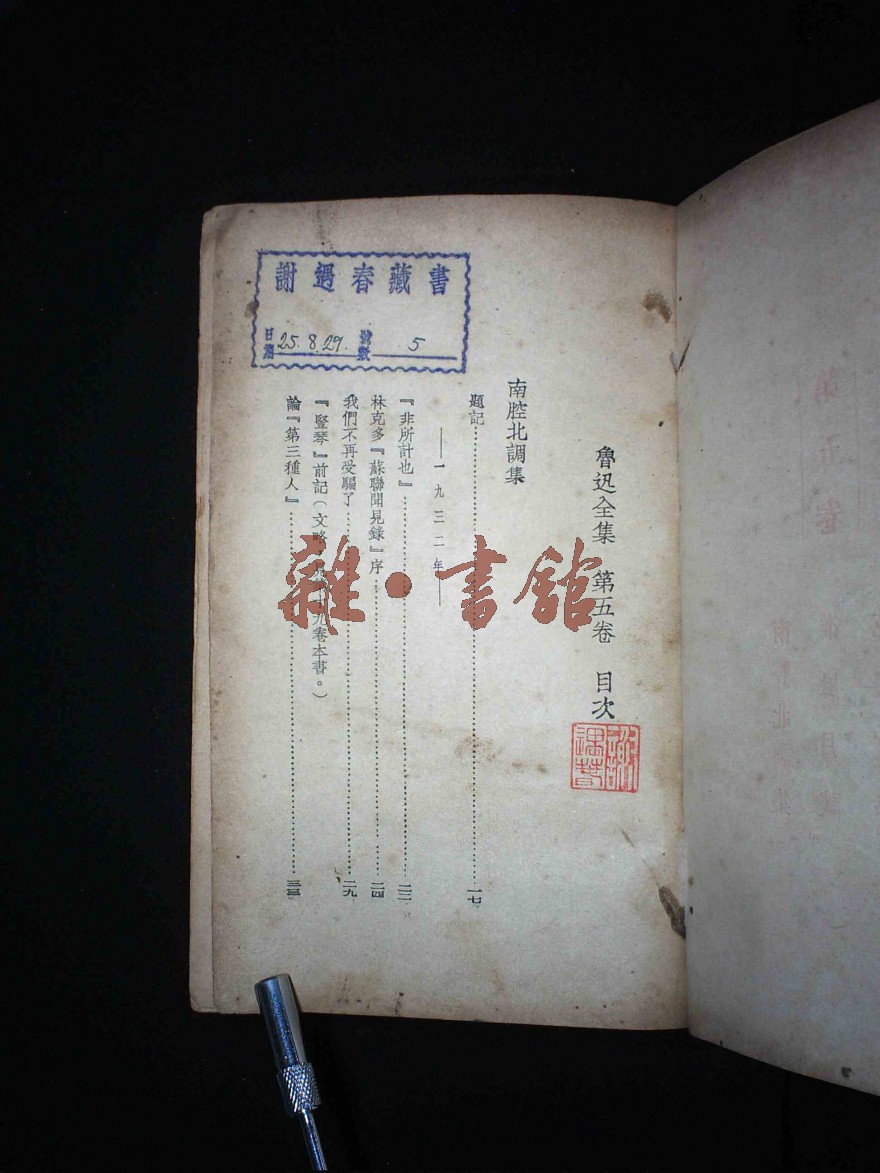 謝過春藏書
日期 25.8.29. 號數 5
魯迅全集 第五卷 目次
南腔北調集
題記……一七
——一九三二年——
『非所計也』……二二
林克多『蘇聯聞見錄』序……二四
我們不再受騙了……二九
『豎琴』前記(文略 九卷本書。)
論『第三種人』……三三
雜·書舘
第五卷